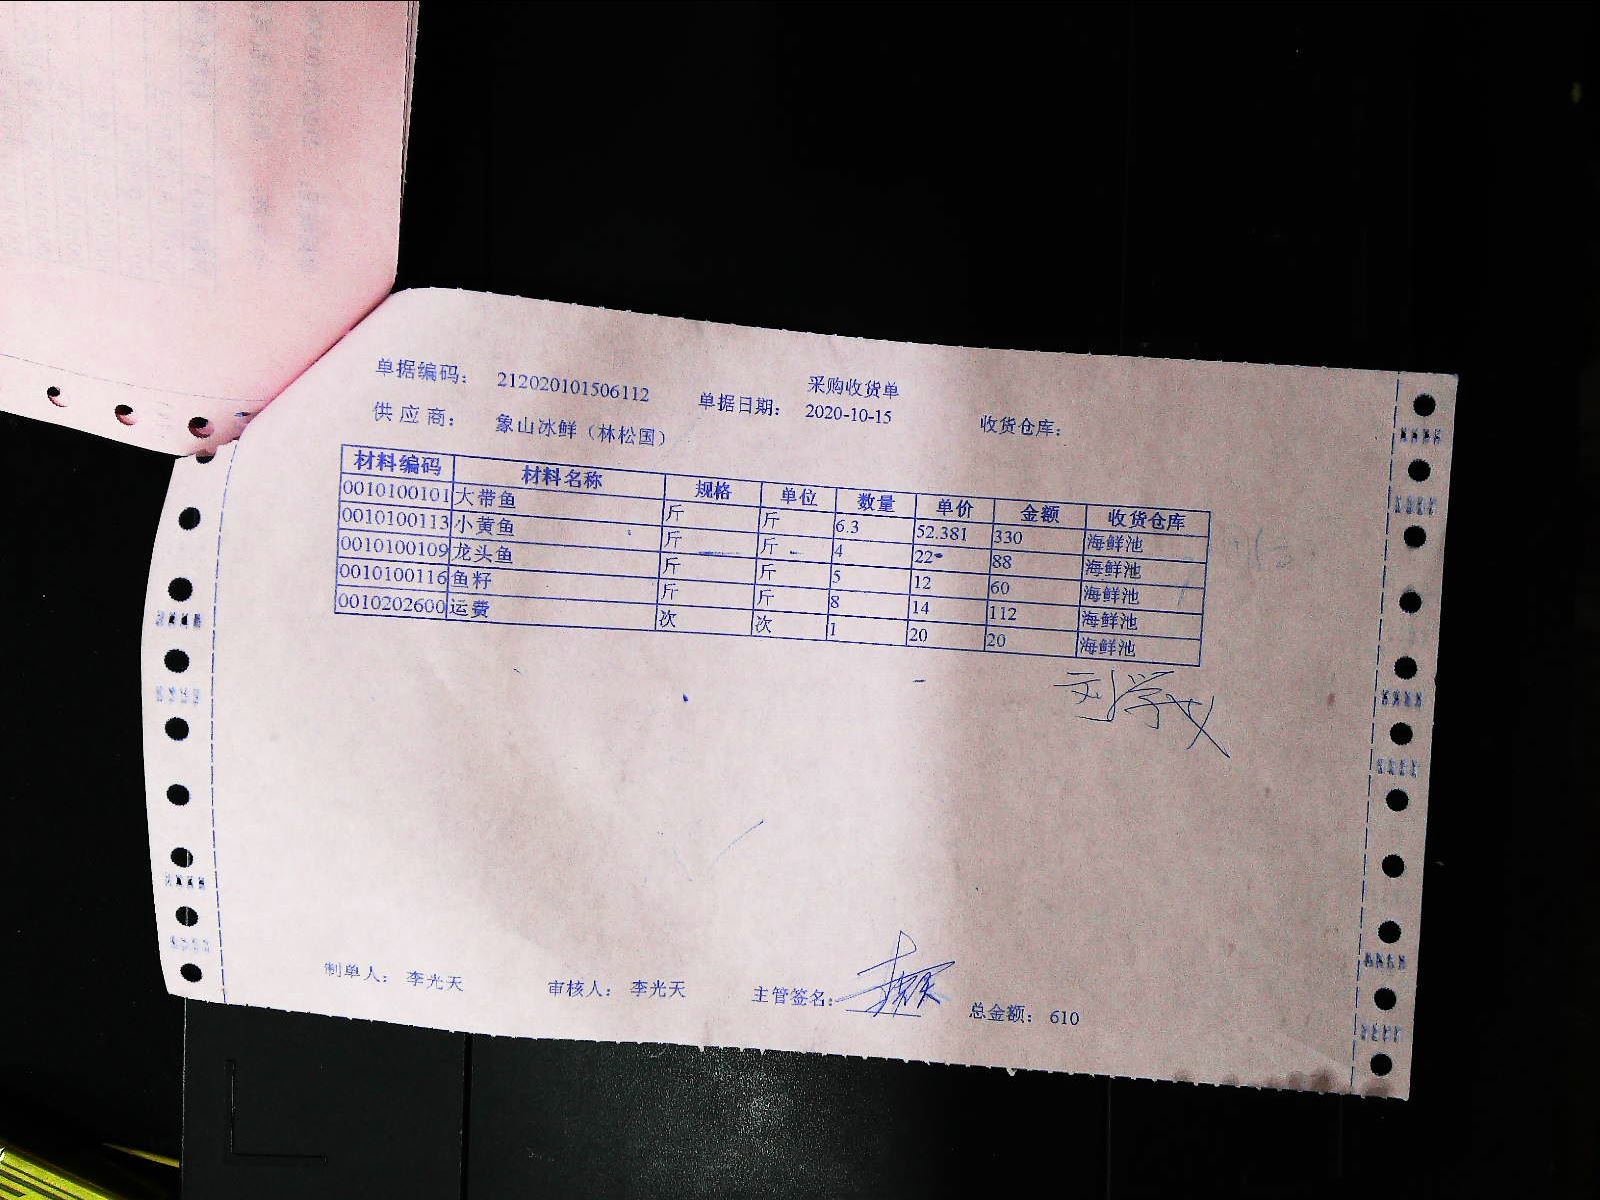 采购收货单
单据编码： 212020101506112 单据日期： 2020-10-15 收货仓库：
供应商： 象山冰鲜（林松国）
材料编码 材料名称 规格 单位 数量 单价 金额 收货仓库
0010100101 大带鱼 斤 斤 6.3 52.381 330 海鲜池
0010100113 小黄鱼 斤 斤 4 22 88 海鲜池
0010100109 龙头鱼 斤 斤 5 12 60 海鲜池
0010100116 鱼籽 斤 斤 8 14 112 海鲜池
0010202600 运费 次 次 1 20 20 海鲜池
制单人： 李光天 审核人： 李光天 主管签名： 总金额： 610